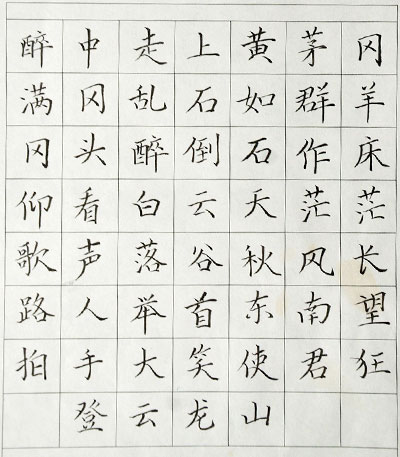 醉中走上黄茅冈
满冈乱石如群羊
冈头醉倒石作床
仰看白云天茫茫
歌声落谷秋风长
路人举首东南望
拍手大笑使君狂
登云龙山